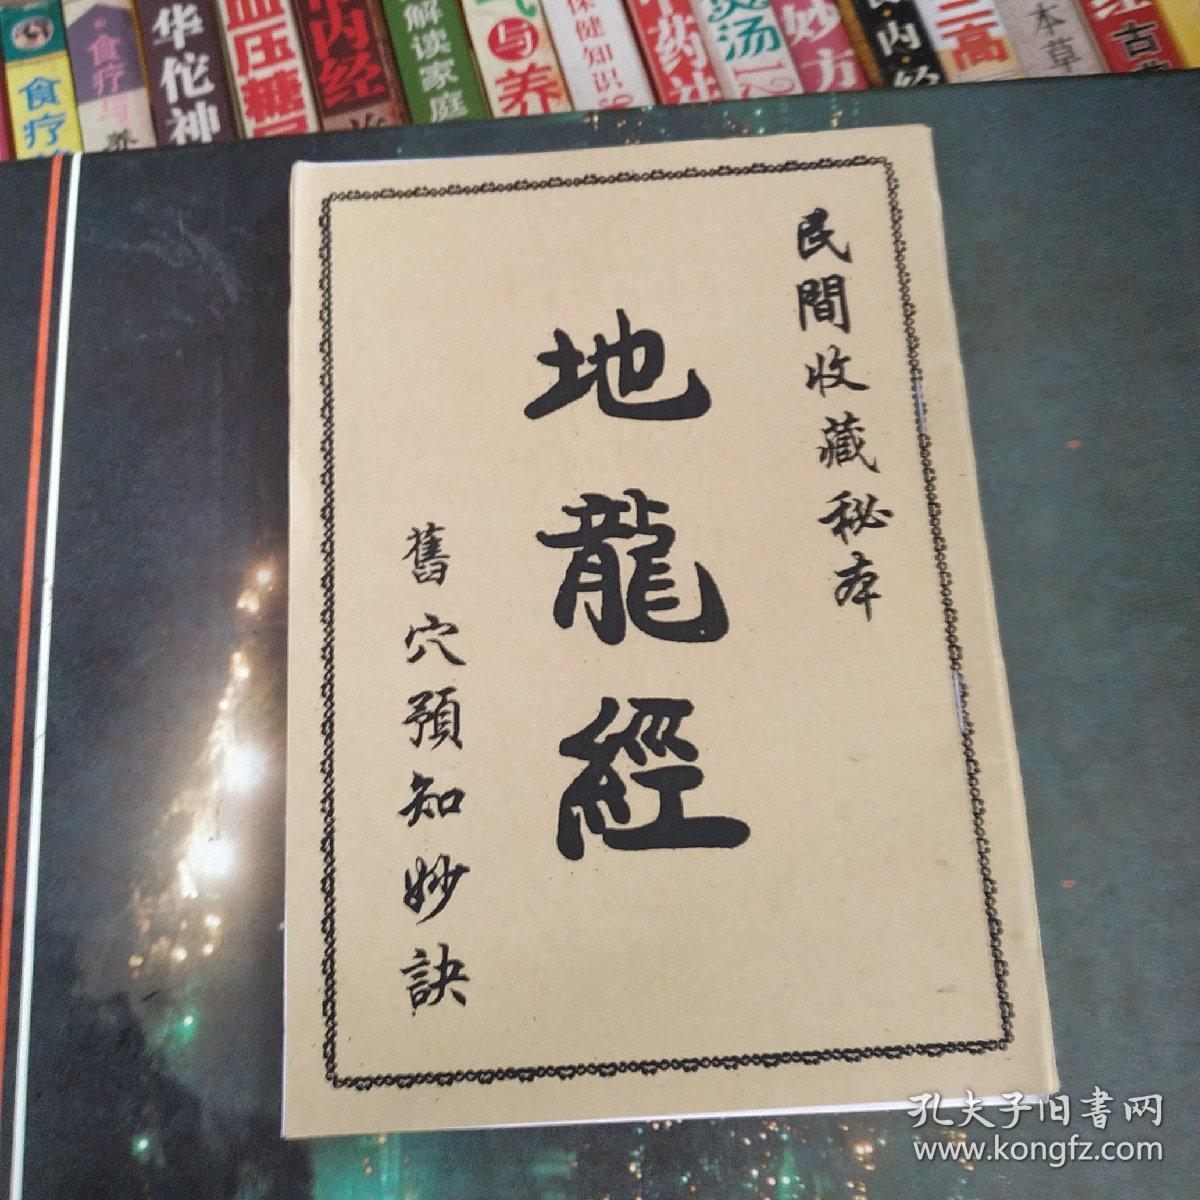 食疗
食疗与养
华佗神
血压糖
内经
解读家庭
与养
保健知识
中药
汤12
妙方
内·经
三高
本草
古
民間收藏秘本
地龍經
舊穴預知妙訣
孔夫子旧書网
www.kongfz.com